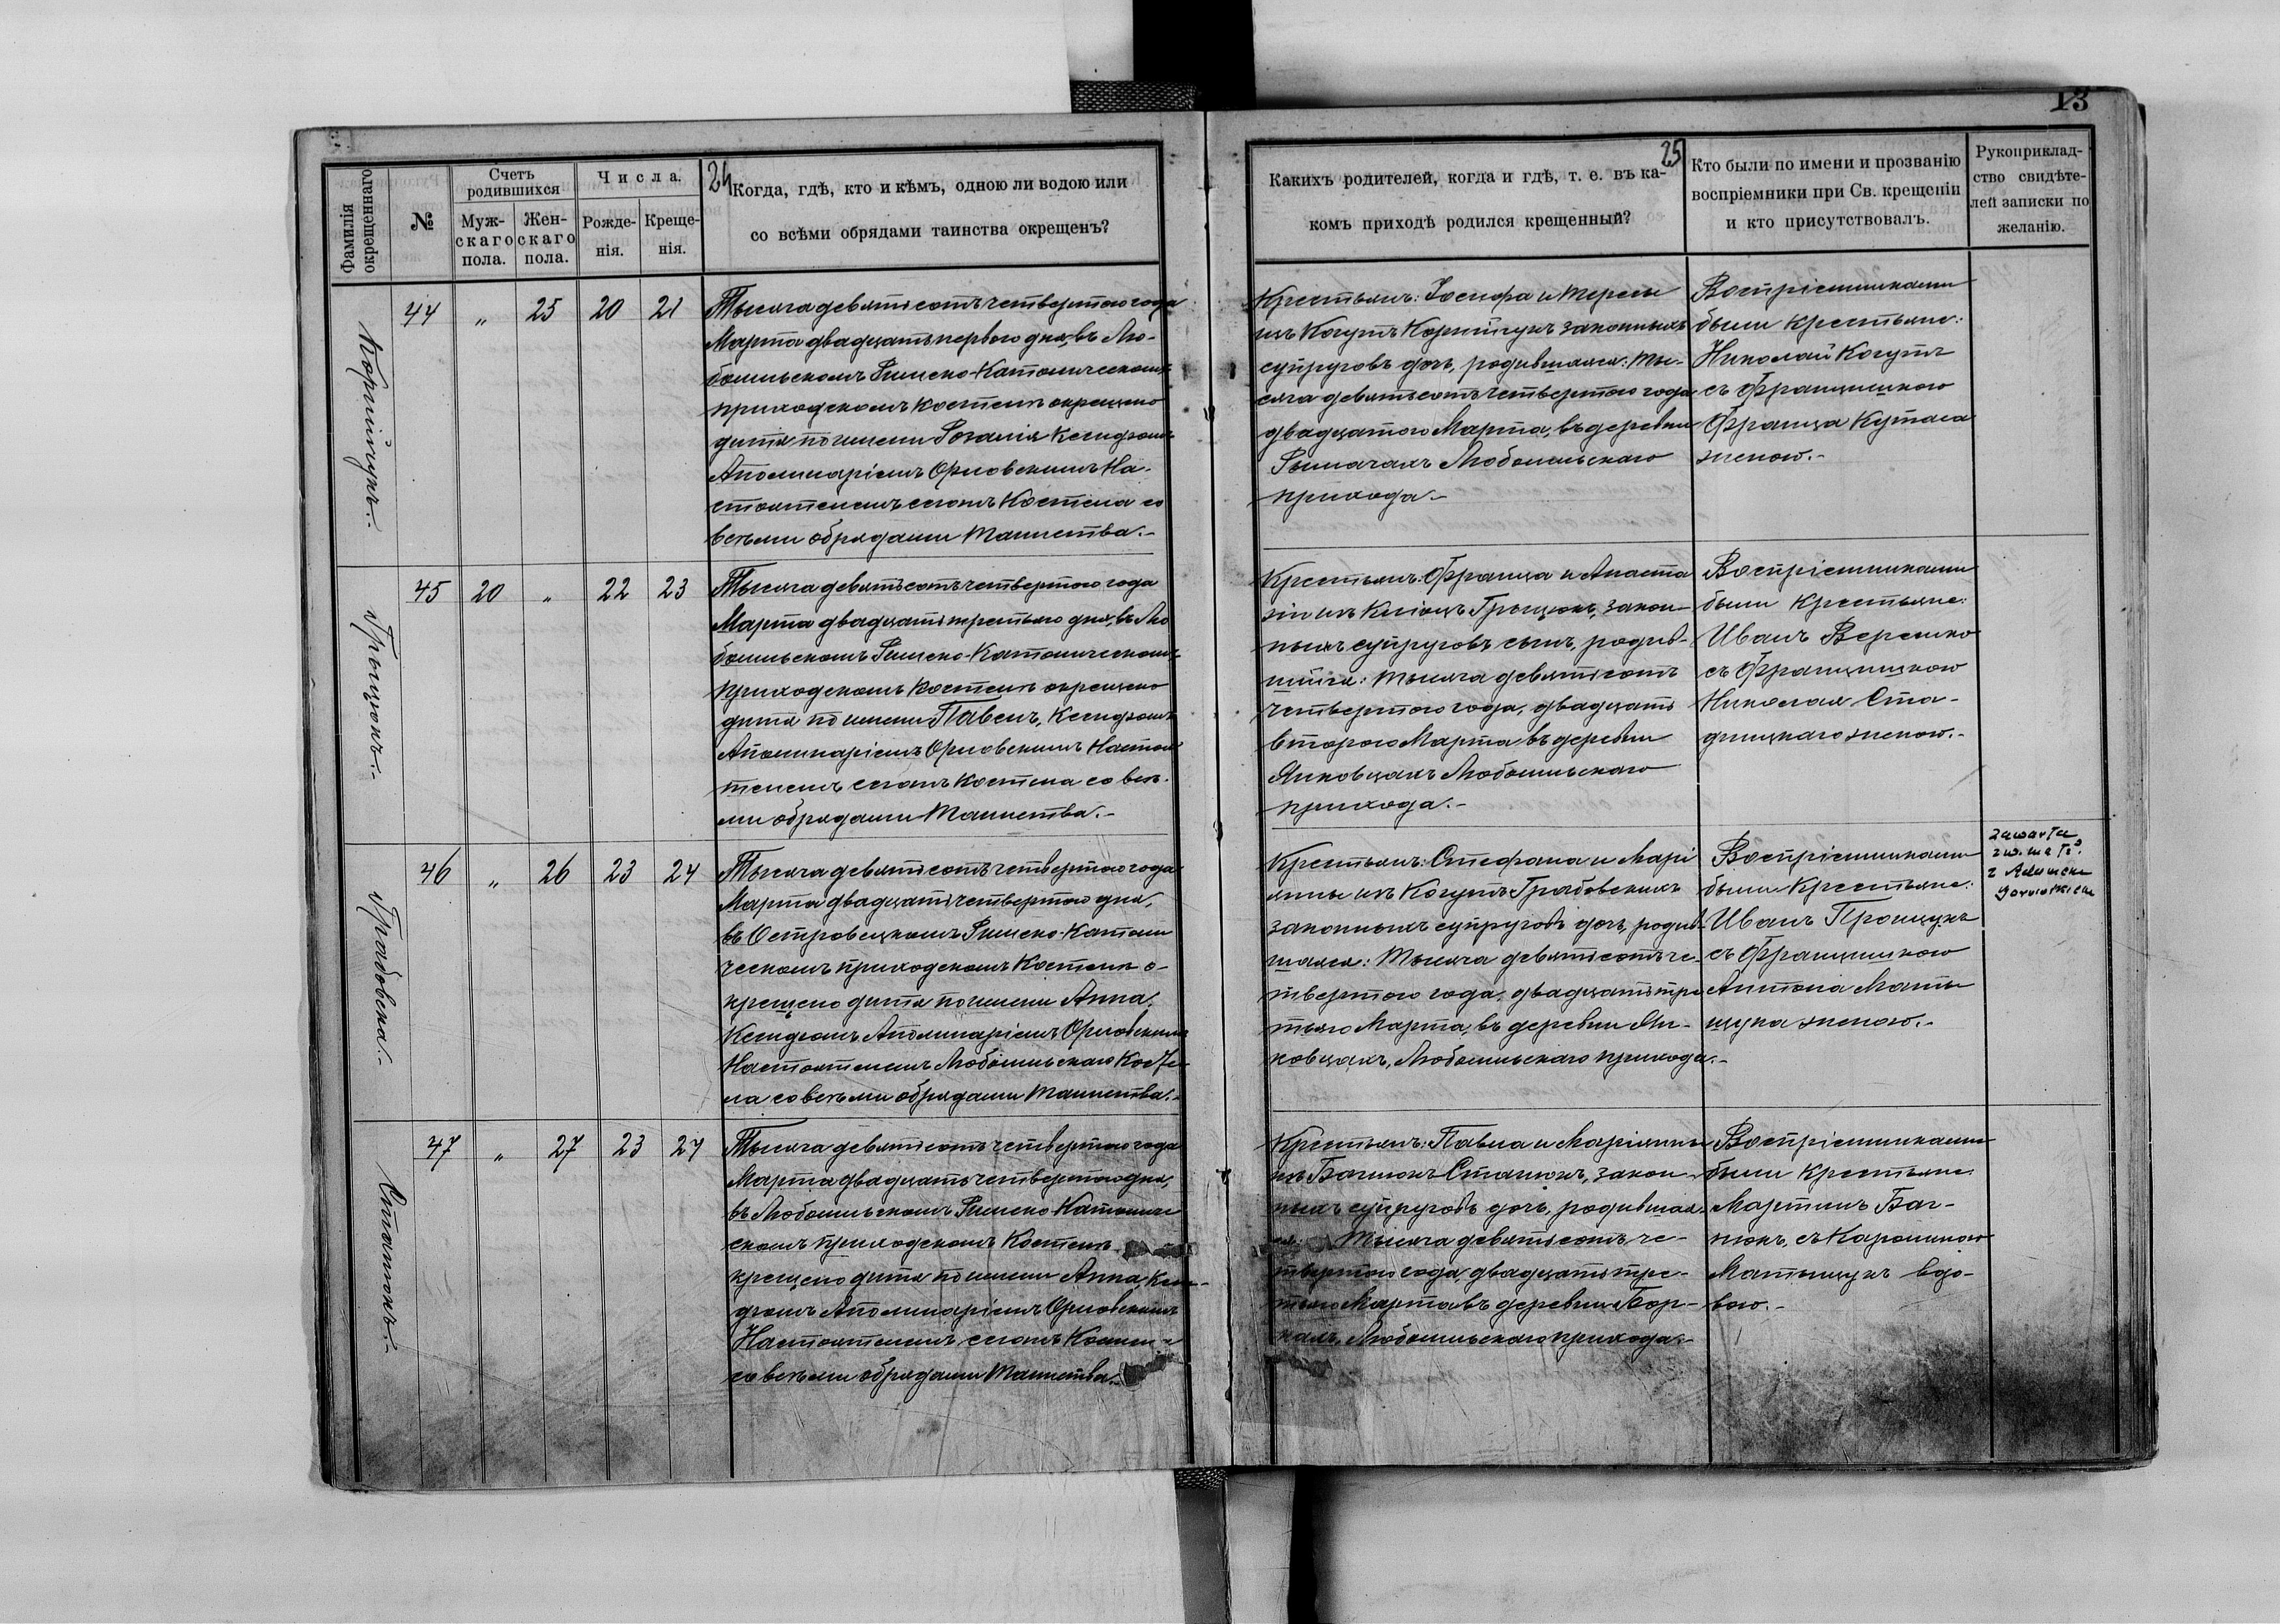 13
24
25
Фамилія окрещеннаго
№
Счетъ родившихся
Муж-
скаго
пола.
Жен-
скаго
пола.
Числа.
Рожде-
нія.
Креще-
нія.
Когда, гдѣ, кто и кѣмъ, одною ли водою или
со всѣми обрядами таинства окрещенъ?
Какихъ родителей, когда и гдѣ, т. е. въ ка-
комъ приходѣ родился крещенный?
Кто были по имени и прозванію
воспріемники при Св. крещеніи
и кто присутствовалъ.
Рукоприклад-
ство свидѣте-
лей записки по
желанію.
44 „ 25 20 21
Тысяча девятьсотъ четвертого года
Марта двадцать первого дня, въ Лю-
бомльскомъ Римско-Католическомъ
приходскомъ костелѣ окрещено
дитя по имени Розалія Ксендзомъ
Аполинаріемъ Орловскимъ На-
стоятелемъ сего Костела со
всѣми обрядами Таинства.-
Крестьянъ: Іосифа и Тересы
изъ Когутъ Корнійчукъ законныхъ
супруговъ дочь, родившаяся: ты-
сяча девятьсотъ четвертого года
двадцатого Марта, въ деревни
Рымачахъ Любомльскаго
прихода.-
Воспріемниками
были крестьяне:
Николай Когутъ
съ Францишкою
Франца Кутаса
женою.-
45 20 „ 22 23
Грыцюкъ.-
Тысяча девятьсотъ четвертого года
Марта двадцать третьяго дня, въ Лю
бомльскомъ Римско-Католическомъ
приходскомъ костелѣ окрещено
дитя по имени Павелъ, Ксендзомъ
Аполинаріемъ Орловскимъ Настоя
телемъ сего Костела со всѣ-
ми обрядами Таинства.-
Крестьянъ: Франца и Анаста
зіи изъ Грыцюкъ, закон-
ныхъ супруговъ сынъ, родив-
шійся: тысяча девятьсотъ
четвертого года, двадцать
второго Марта въ деревни
Янковцахъ Любомльскаго
прихода.-
Воспріемниками
были крестьяне:
Иванъ Веремко
съ Францишкою
Николая Ста-
дницкаго женою.-
46 „ 26 23 24
Грабовска.-
Тысяча девятьсотъ четвертого года
Марта двадцать четвертого дня,
въ Островецкомъ Римско-Католи
ческомъ приходскомъ Костелѣ о-
крещено дитя по имени Анна,
Ксендзомъ Аполинаріемъ Орловскимъ
Настоятелемъ Любомльскаго Косте
ла со всѣми обрядами Таинства.-
Крестьянъ: Стефана и Марі
янны изъ Когутъ Грабовскихъ
законныхъ супруговъ дочь, родив-
шаяся: Тысяча девятьсотъ че-
твертого года, двадцать тре
тьяго Марта, въ деревни Ян-
ковцахъ, Любомльскаго прихода.-
Воспріемниками
были Крестьяне:
Иванъ Процукъ
съ Францишкою
Антона Маты
щука женою.-
zawarła
zw. małż.
z Adamem
47 „ 27 23 24
Станюкъ.-
Тысяча девятьсотъ четвертого года
Марта двадцать четвертого дня,
въ Любомльскомъ Римско-Католиче
скомъ приходскомъ Костелѣ
крещено дитя по имени Анна, Ксен-
дзомъ Аполинаріемъ Орловскимъ
Настоятелемъ сего Костела
со всѣми обрядами Таинства.-
Крестьянъ: Павла и Маріянны
изъ Багнюкъ Станюкъ, закон-
ныхъ супруговъ дочь, родившая-
ся: Тысяча девятьсотъ че-
твертого года, двадцать тре-
тьяго Марта въ деревни Бор-
кахъ, Любомльскаго прихода.-
Воспріемниками
были Крестьяне:
Мартинъ Баг-
нюкъ, съ Каролиною
Матыщукъ вдо-
вою.-